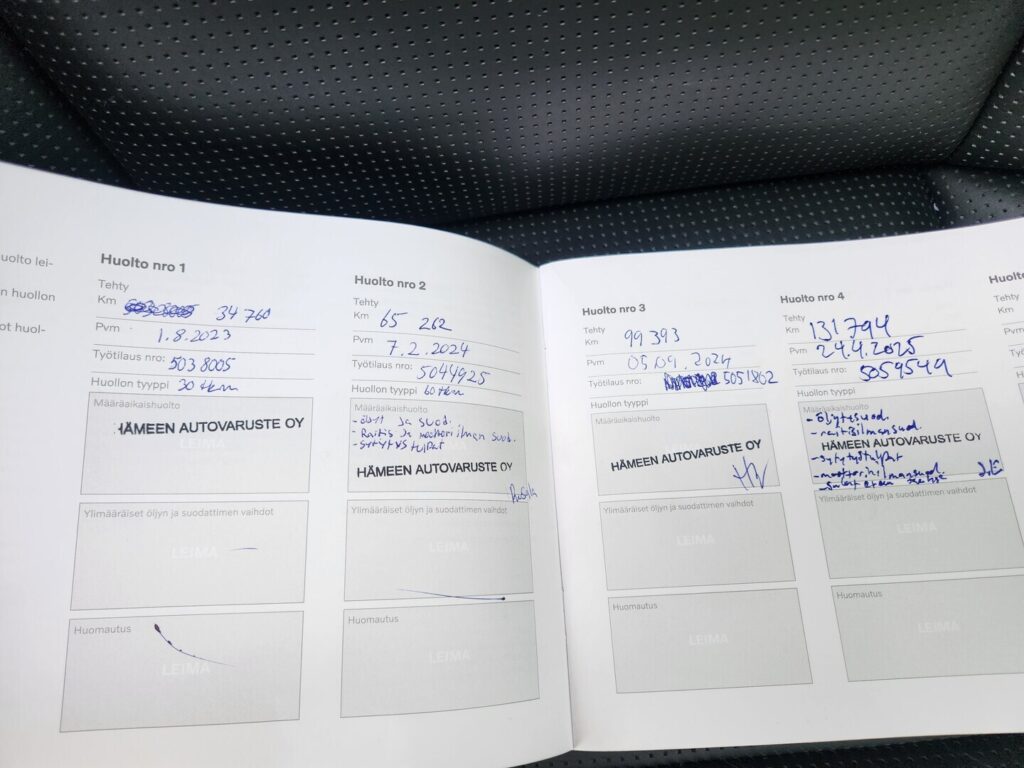 uolto lei-
n huollon
ot huol-
Huolto nro 1
Tehty
Km 34 760
Pvm 1.8.2023
Työtilaus nro: 5038005
Huollon tyyppi 30 tkm
Määräaikaishuolto
HÄMEEN AUTOVARUSTE OY
LEIMA
Ylimääräiset öljyn ja suodattimen vaihdot
LEIMA
Huomautus
LEIMA
Huolto nro 2
Tehty
Km 65 262
Pvm 7.2.2024
Työtilaus nro: 5044925
Huollon tyyppi 60 tkm
Määräaikaishuolto
- öljyt ja suod.
- Raitis ja moottorilman suod.
- sytytystulpat
HÄMEEN AUTOVARUSTE OY
Ylimääräiset öljyn ja suodattimen vaihdot
LEIMA
Huomautus
LEIMA
Huolto nro 3
Tehty
Km 99 393
Pvm 05.09.2024
Työtilaus nro: 5051802
Huollon tyyppi
Määräaikaishuolto
HÄMEEN AUTOVARUSTE OY
Ylimääräiset öljyn ja suodattimen vaihdot
LEIMA
Huomautus
LEIMA
Huolto nro 4
Tehty
Km 131794
Pvm 24.4.2025
Työtilaus nro: 5059549
Huollon tyyppi
Määräaikaishuolto
- öljytesuod.
- raitisilmansuod.
HÄMEEN AUTOVARUSTE OY
- sytytystulpat
- moottorinilmansuod.
Ylimääräiset öljyn ja suodattimen vaihdot
LEIMA
Huomautus
LEIMA
Huolto
Tehty
Km
Pvm
Työtil
Huo